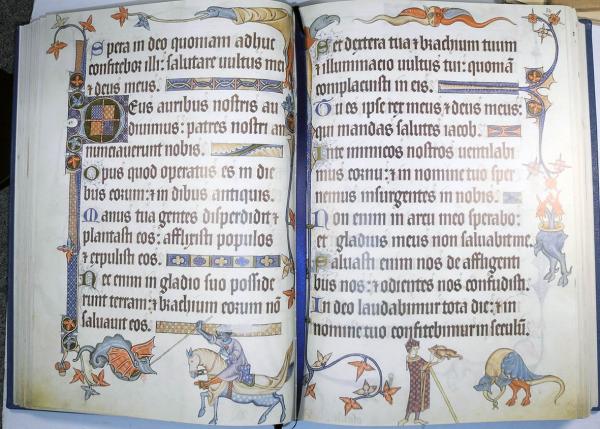 Spera in deo quoniam adhuc
confitebor illi: salutare uultus mei
⁊ deus meus.
Deus auribus nostris au
diuimus: patres nostri an
nunciauerunt nobis.
Opus quod operatus es in die
bus eorum: ⁊ in diebus antiquis.
Manus tua gentes disperdidit ⁊
plantasti eos: afflixisti populos
⁊ expulisti eos.
Nec enim in gladio suo posside
runt terram: ⁊ brachium eorum nō
saluauit eos.
Set dextera tua ⁊ brachium tuum
⁊ illuminacio uultus tui: quoniā
complacuisti in eis.
Tu es ipse rex meus ⁊ deus meus:
qui mandas salutes iacob.
In te inimicos nostros uentilabi
mus cornu: ⁊ in nomine tuo sper
nemus insurgentes in nobis.
Non enim in arcu meo sperabo:
et gladius meus non saluabit me.
Saluasti enim nos de affligenti
bus nos: ⁊ odientes nos confudisti.
In deo laudabimur tota die: ⁊ in
nomine tuo confitebimur in seculū.